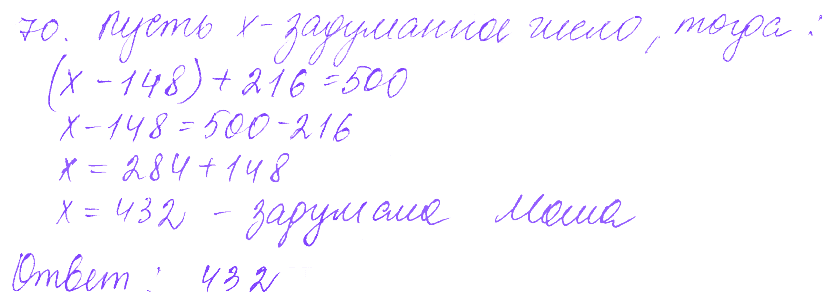 70. Пусть x - задуманное число, тогда:
(x - 148) + 216 = 500
x - 148 = 500 - 216
x = 284 + 148
x = 432 - задумала Маша
Ответ: 432